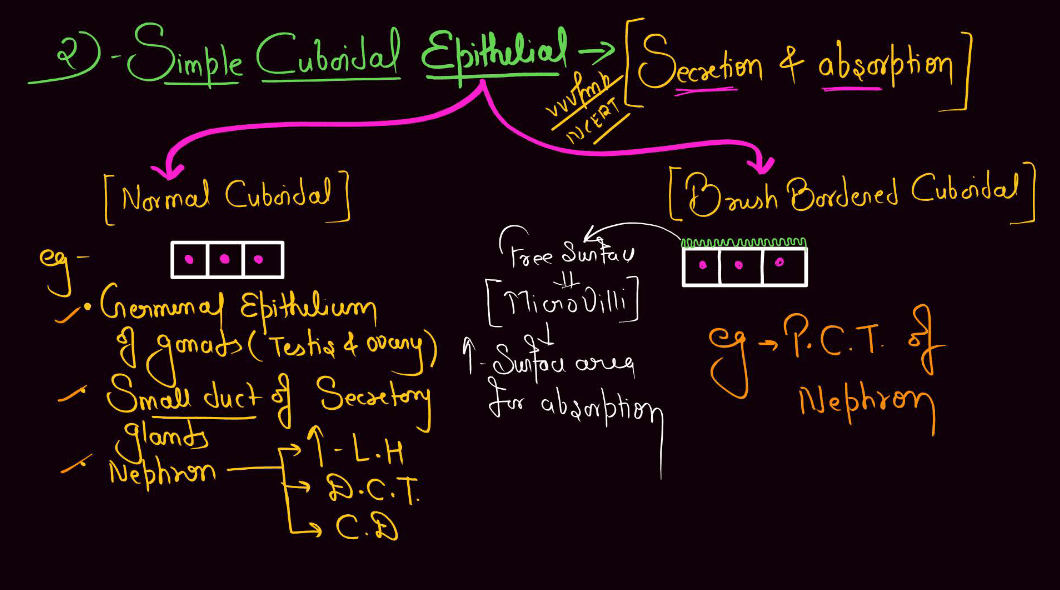 2)-Simple Cuboidal Epithelial → [Secretion & absorption]
vvvImb
NCERT
[Normal Cuboidal]
[Brush Bordened Cuboidal]
eg -
• Germinal Epithelium
of gonads (Testis & ovary)
Small duct of Secretory
glands
Nephron
↑ - L.H
D.C.T.
C.D
Free Surfac
[MicroVilli]
↑ - Surface area
for absorption
eg → P.C.T. of
Nephron